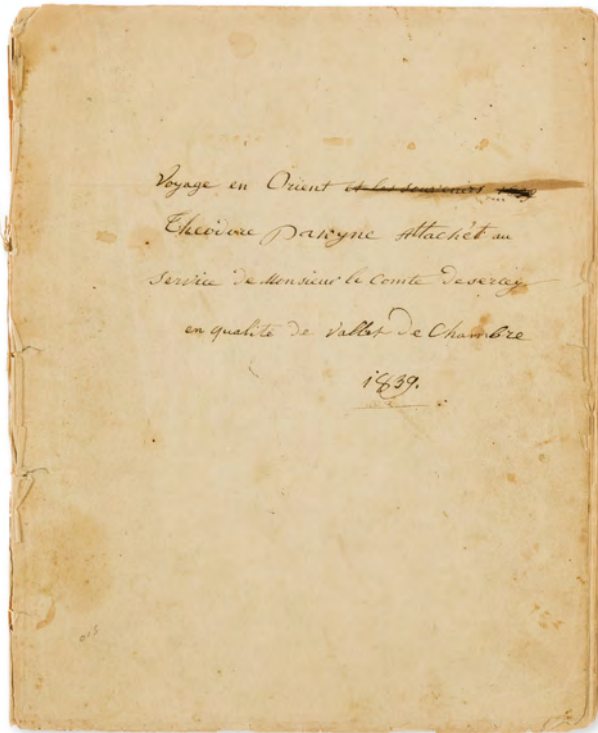 Voyage en Orient et les souvenirs
Theodore Attachét au
Service de Monsieur le Comte Desercey
en qualité de Vallet de Chambre
1839.